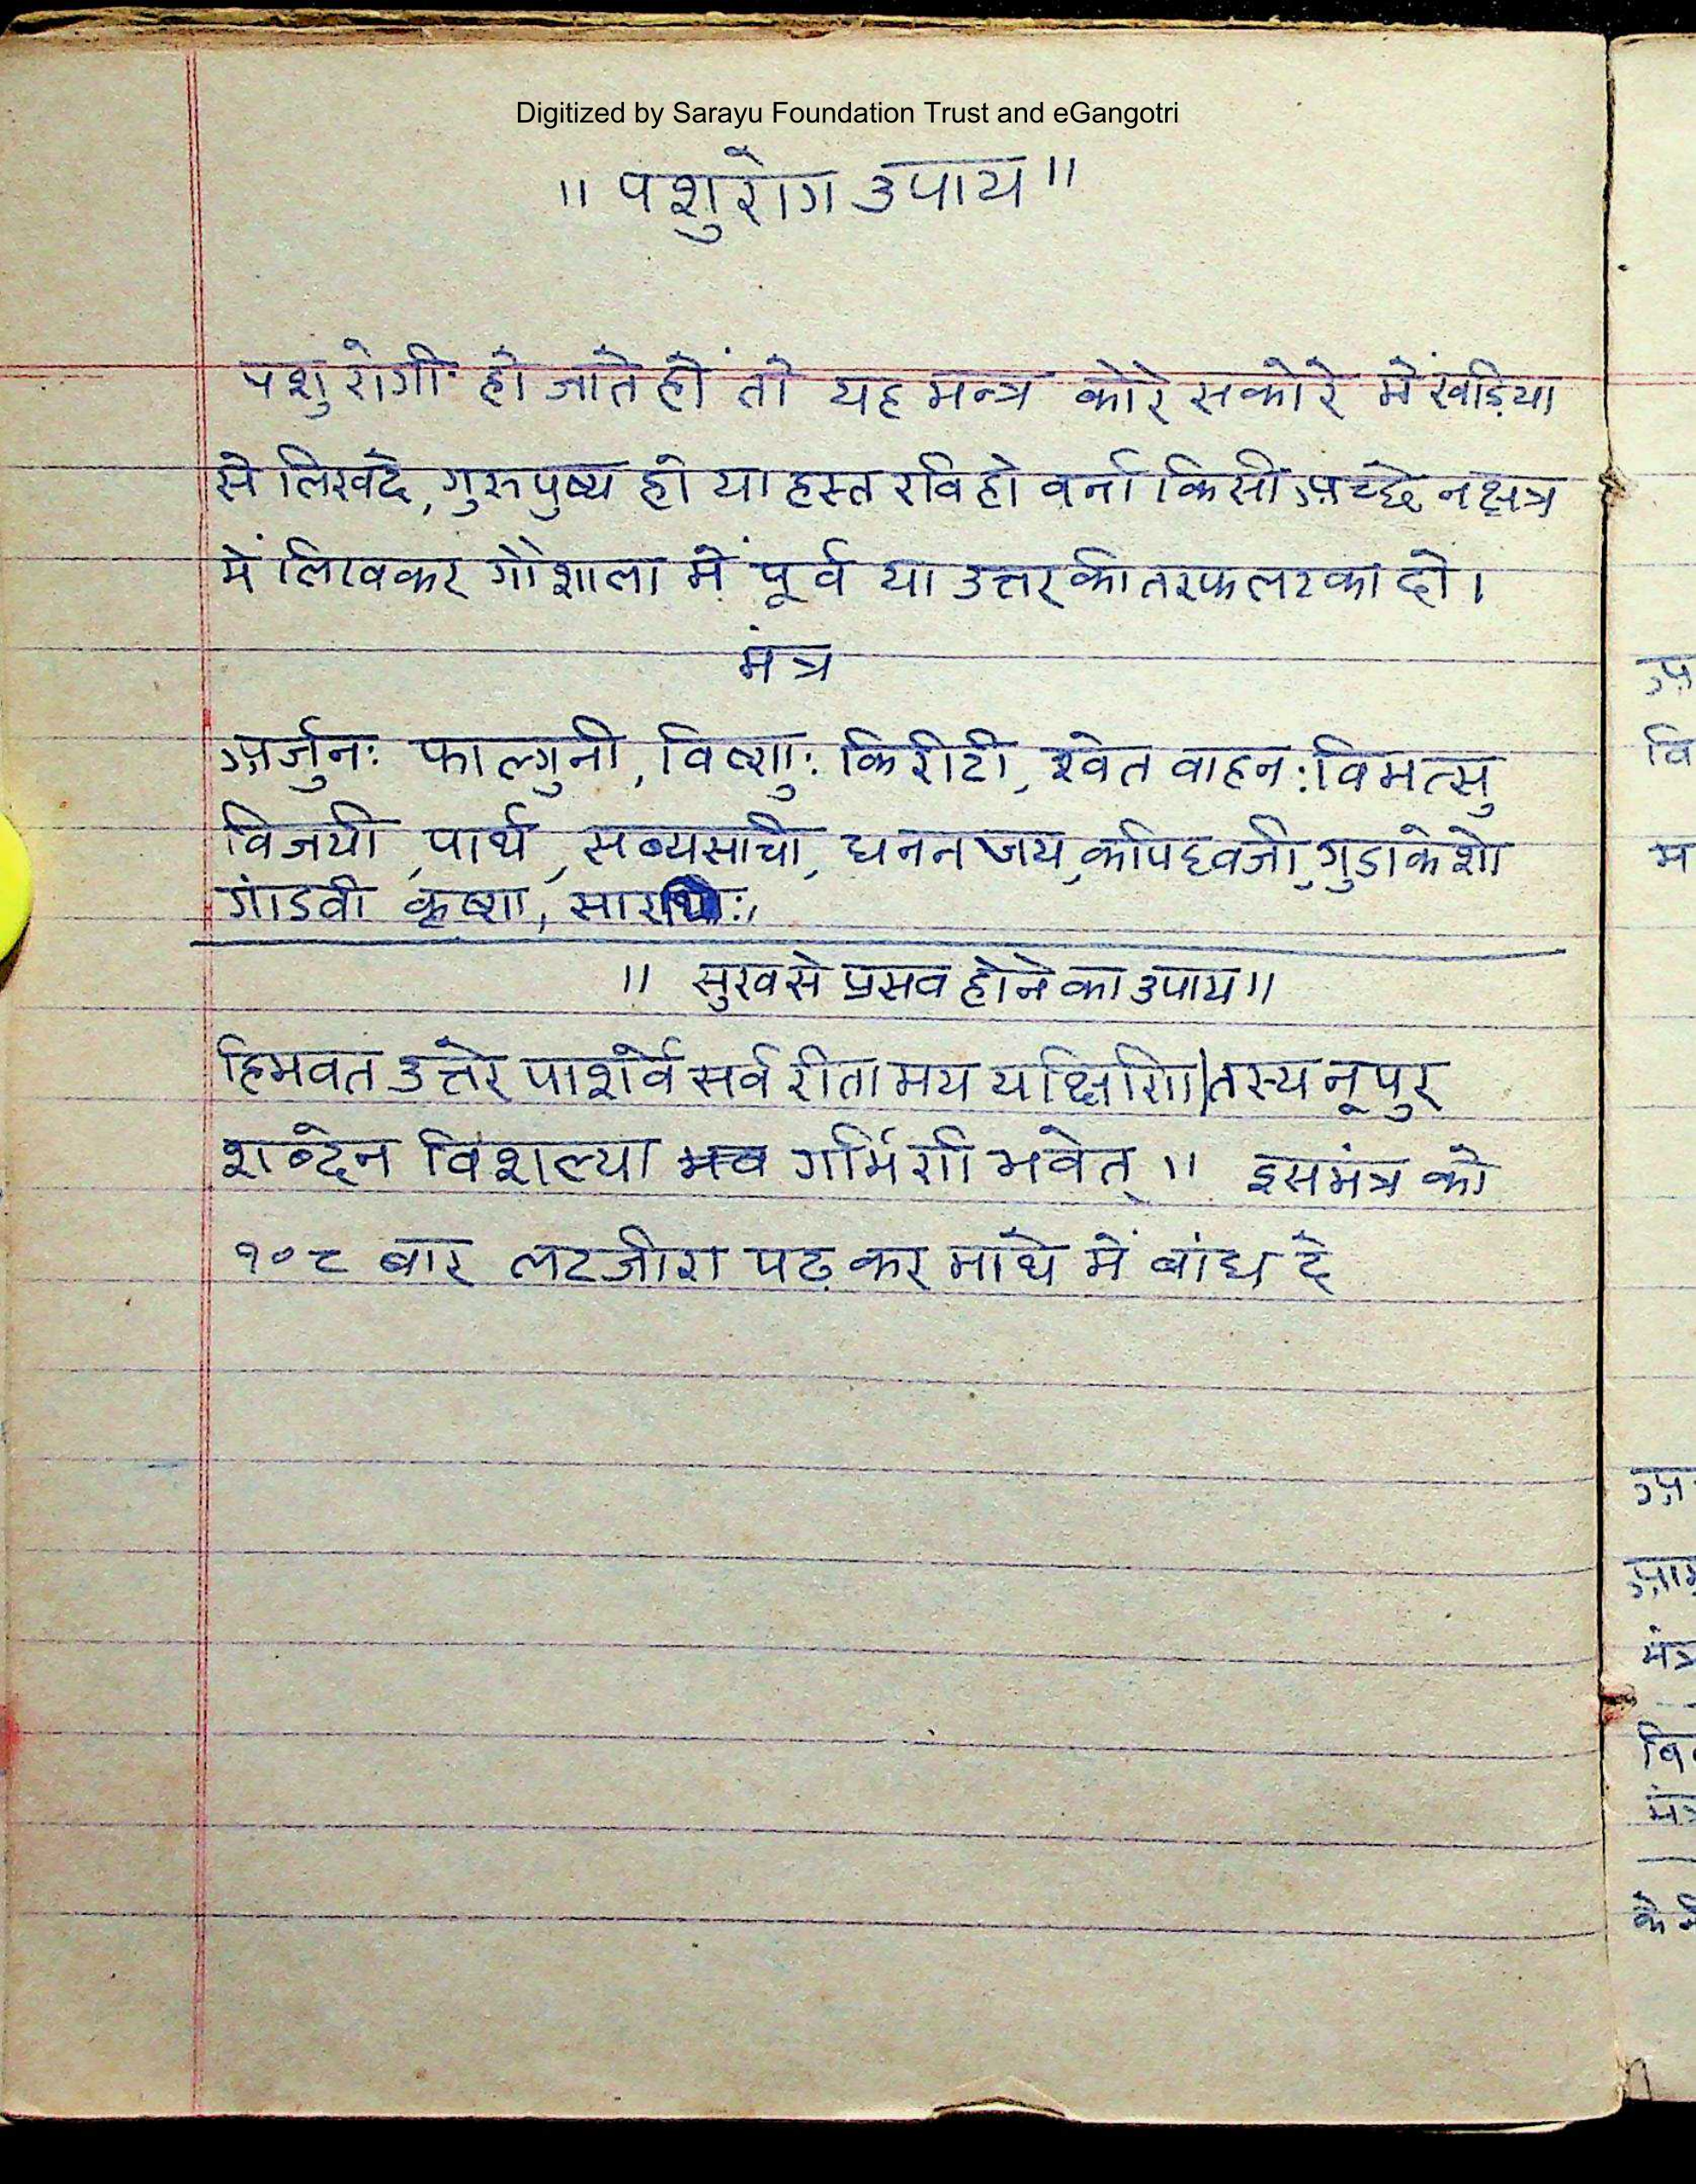 Digitized by Sarayu Foundation Trust and eGangotri
॥ पशुरोग उपाय ॥
पशु रोगी हो जाते हों तो यह मन्त्र कोरे सकोरे में खड़िया
से लिखदे, गुरु पुष्य हो या हस्त रवि हो वर्ना किसी अच्छे नक्षत्र
में लिखकर गौशाला में पूर्व या उत्तर की तरफ लटका दो।
मंत्र
अर्जुनः फाल्गुनी, विष्णुः किरीटी, श्वेत वाहनः विमत्सु
विजयी, पार्थ, सव्यसाची, धनन जय, कपिध्वजो, गुडाकेशो
गांडवी कृष्ण, सारथिः,
॥ सुख से प्रसव होने का उपाय ॥
हिमवत उत्तरे पार्श्वे सर्व रीतामय यक्षिणि। तस्य नूपुर
शब्देन विशल्या गर्भिणी भवेत् ॥ इस मंत्र को
१०८ बार लटजीरा पढ़ कर माथे में बांध दे
अ
वि
म